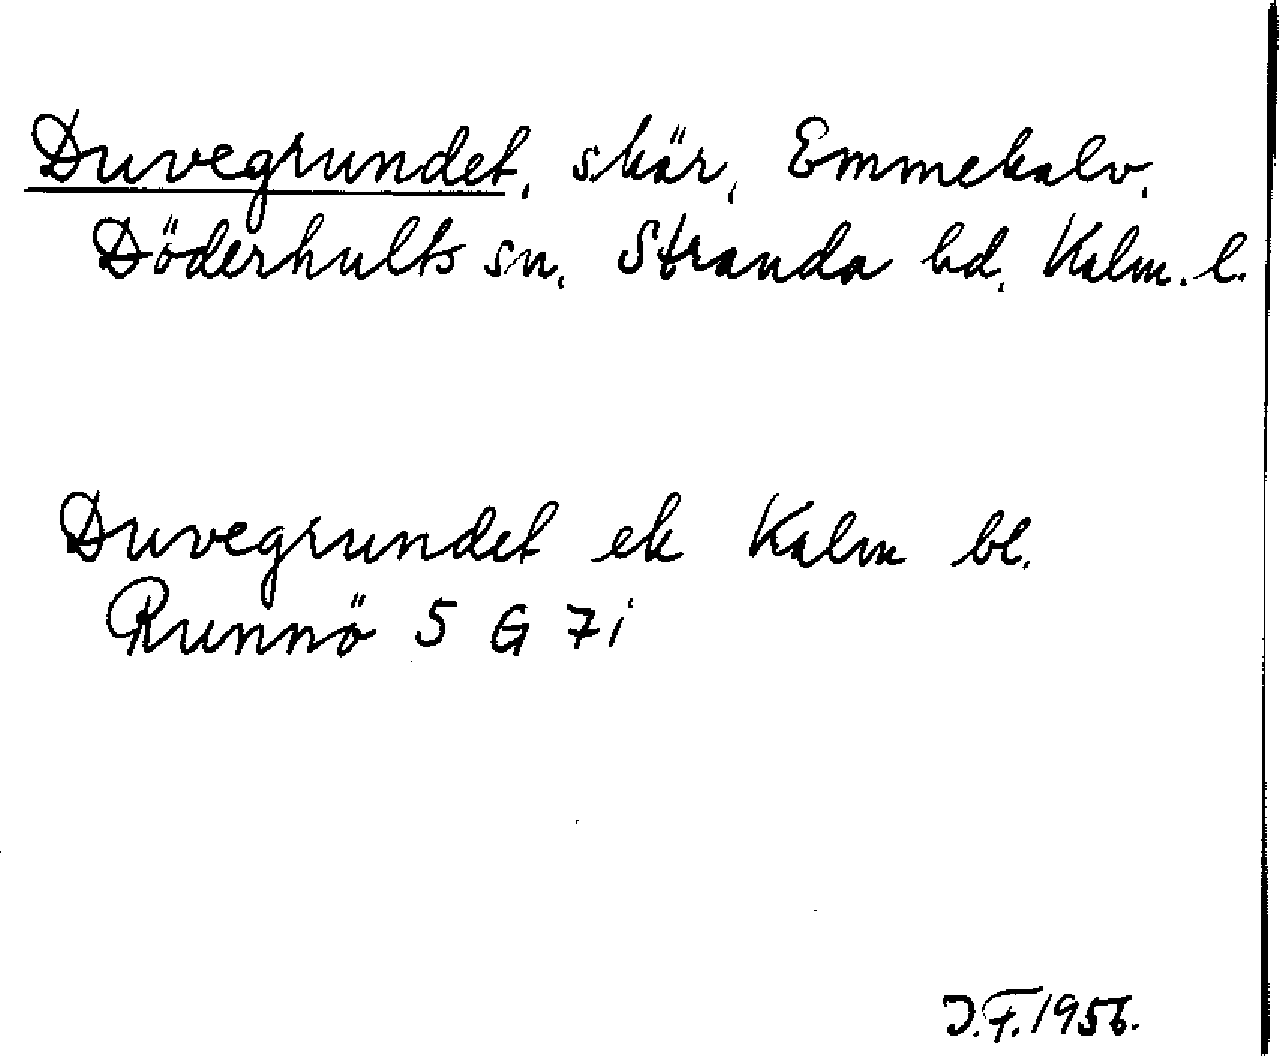 Duvegrundet, skär, Emmekalv,
Döderhults sn, Stranda hd, Kalm. l.
Duvegrundet ek Kalm bl.
Runnö 5 G 7i
J.F. 1956.